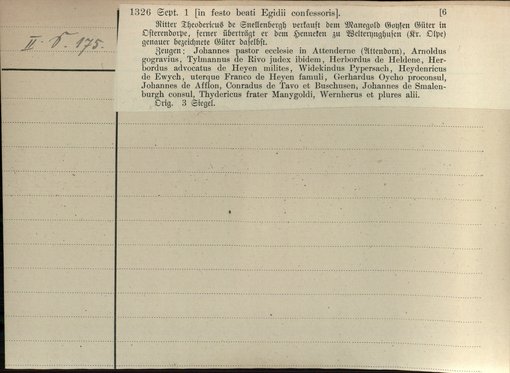 1326 Sept. 1 [in festo beati Egidii confessoris]. [6
Ritter Theodericus de Snellenbergh verkauft dem Manegold Goyſen Güter in
Oſterendorpe, ferner überträgt er dem Henneken zu Welteryngehuſen (Kr. Olpe)
genauer bezeichnete Güter daſelbſt.
Zeugen: Johannes pastor ecclesie in Attenderne (Attendorn), Arnoldus
gogravius, Tylmannus de Rivo judex ibidem, Herbordus de Heldene, Her-
bordus advocatus de Heyen milites, Widekindus Pypersach, Heydenricus
de Ewych, uterque Franco de Heyen famuli, Gerhardus Oycho proconsul,
Johannes de Afflon, Conradus de Tavo et Buschusen, Johannes de Smalen-
burgh consul, Thydericus frater Manygoldi, Wernherus et plures alii.
Orig. 3 Siegel.
II. 175.